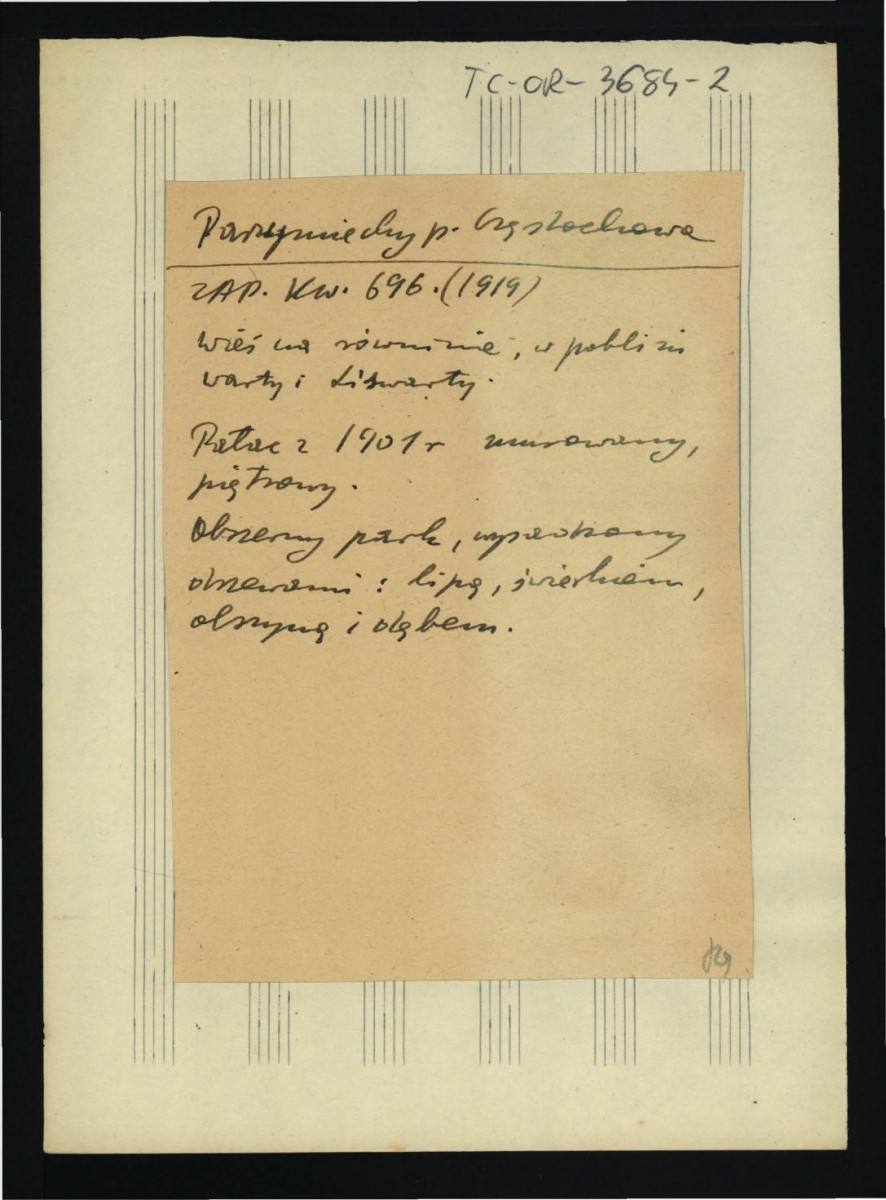 TC-OR-3684-2
Parzymiechy p. Częstochowa
ZAP. Kw. 696. (1919)
Wieś na równinie, w pobliżu
Warty i Liswarty.
Pałac z 1901 r murowany,
piętrowy.
Obszerny park, wysadzony
drzewami: lipą, świerkiem,
olszyną i dębem.